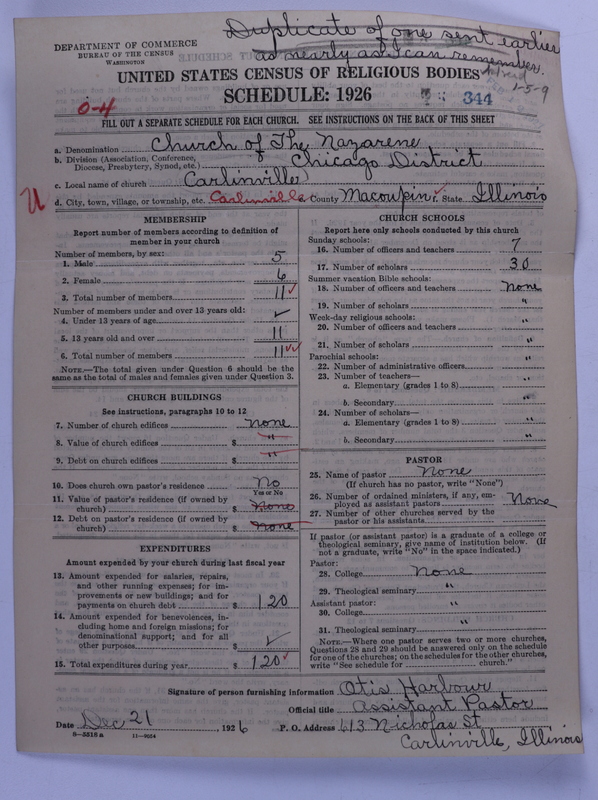 Duplicate of one sent earlier
as nearly as I can remember.
1-5-9
DEPARTMENT OF COMMERCE
BUREAU OF THE CENSUS
WASHINGTON
UNITED STATES CENSUS OF RELIGIOUS BODIES
SCHEDULE: 1926
344
0-4
FILL OUT A SEPARATE SCHEDULE FOR EACH CHURCH. SEE INSTRUCTIONS ON THE BACK OF THIS SHEET
a. Denomination Church of The Nazarene
b. Division (Association, Conference, Diocese, Presbytery, Synod, etc.) Chicago District
c. Local name of church Carlinville
d. City, town, village, or township, etc. Carlinville County Macoupin State Illinois
U
MEMBERSHIP
Report number of members according to definition of
member in your church
Number of members, by sex:
1. Male 5
2. Female 6
3. Total number of members 11 ✓
Number of members under and over 13 years old:
4. Under 13 years of age ✓
5. 13 years old and over 11
6. Total number of members 11 ✓✓
NOTE.—The total given under Question 6 should be the
same as the total of males and females given under Question 3.
CHURCH BUILDINGS
See instructions, paragraphs 10 to 12
7. Number of church edifices none
8. Value of church edifices $ "
9. Debt on church edifices $ "
10. Does church own pastor's residence? No
Yes or No
11. Value of pastor's residence (if owned by
church) $ None
12. Debt on pastor's residence (if owned by
church) $ none
EXPENDITURES
Amount expended by your church during last fiscal year
13. Amount expended for salaries, repairs,
and other running expenses; for im-
provements or new buildings; and for
payments on church debt $ 120
14. Amount expended for benevolences, in-
cluding home and foreign missions; for
denominational support; and for all
other purposes $ ✓
15. Total expenditures during year $ 120 ✓
CHURCH SCHOOLS
Report here only schools conducted by this church
Sunday schools:
16. Number of officers and teachers 7
17. Number of scholars 30
Summer vacation Bible schools:
18. Number of officers and teachers none
19. Number of scholars "
Week-day religious schools:
20. Number of officers and teachers "
21. Number of scholars "
Parochial schools:
22. Number of administrative officers "
23. Number of teachers—
a. Elementary (grades 1 to 8) "
b. Secondary "
24. Number of scholars—
a. Elementary (grades 1 to 8) "
b. Secondary "
PASTOR
25. Name of pastor None
(If church has no pastor, write "None")
26. Number of ordained ministers, if any, em-
ployed as assistant pastors None
27. Number of other churches served by the
pastor or his assistants
If pastor (or assistant pastor) is a graduate of a college or
theological seminary, give name of institution below. (If
not a graduate, write "No" in the space indicated.)
Pastor:
28. College None
29. Theological seminary "
Assistant pastor:
30. College "
31. Theological seminary "
NOTE.—Where one pastor serves two or more churches,
Questions 28 and 29 should be answered only on the schedule
for one of the churches; on the schedules for the other churches,
write "See schedule for church."
Signature of person furnishing information Otis Harbour
Official title Assistant Pastor
Date Dec 21, 1926 P. O. Address 613 Nicholas St
Carlinville, Illinois
8-5516 a 11-9554